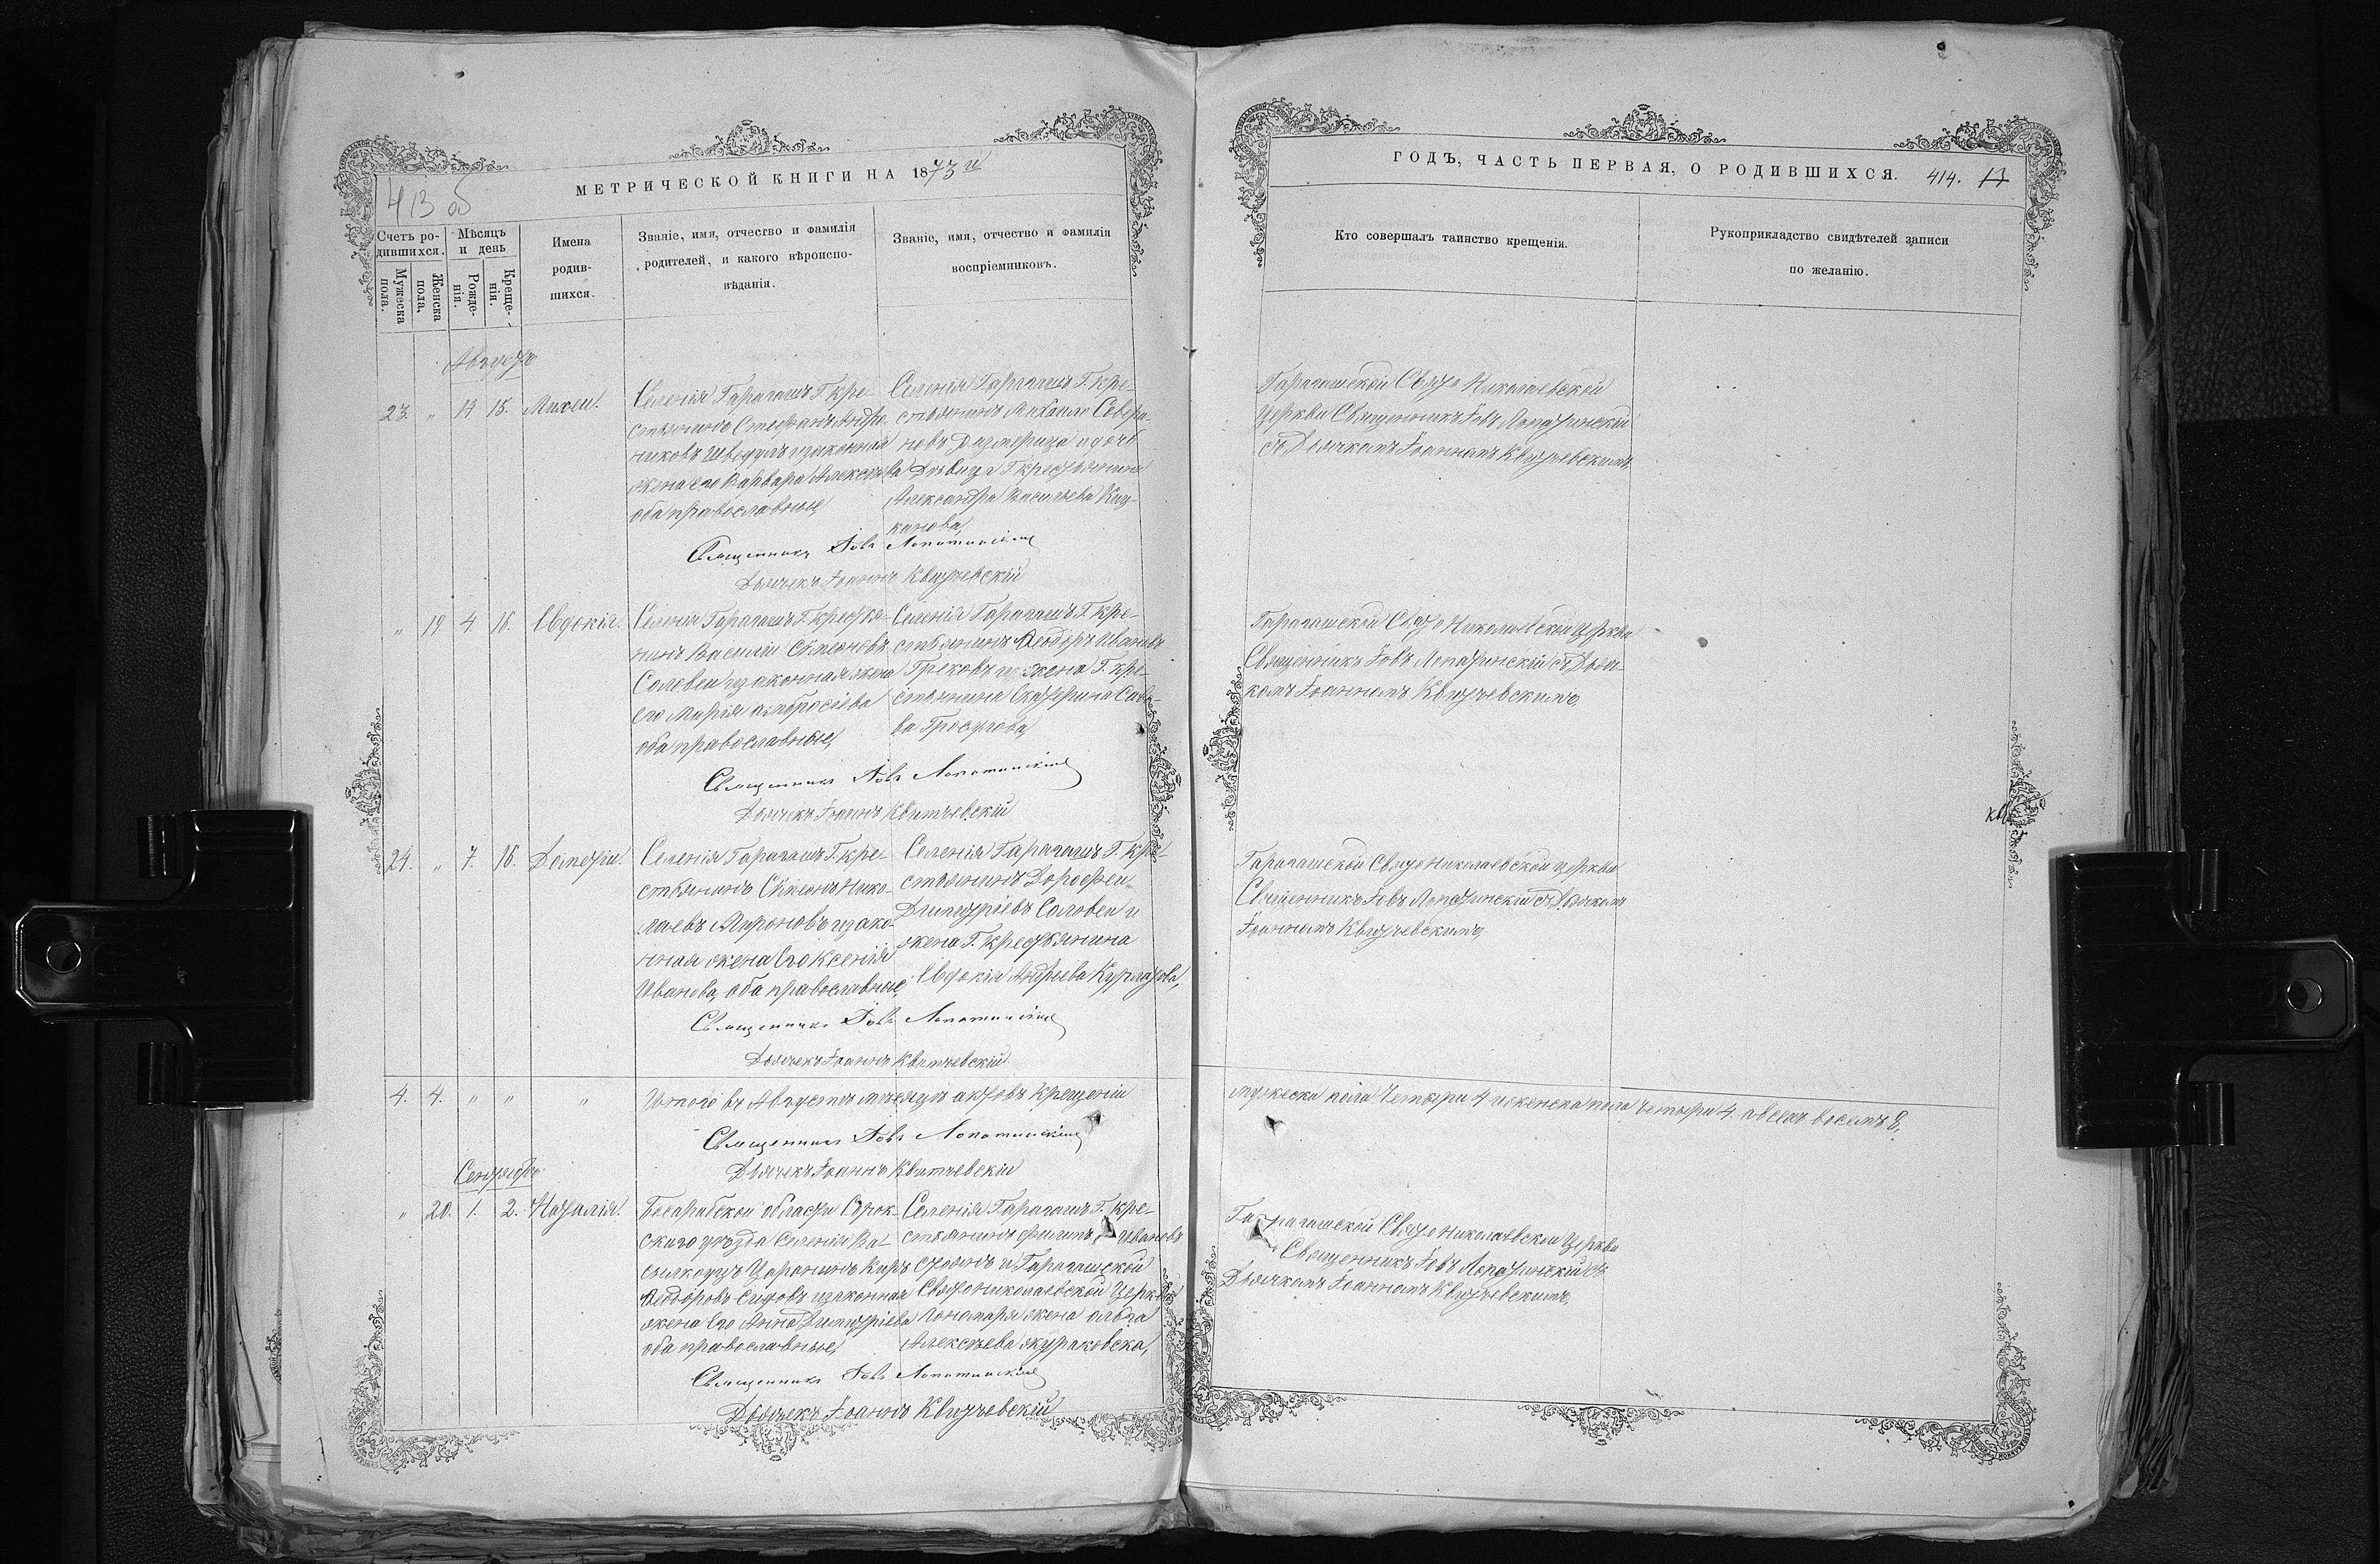 413 об
МЕТРИЧЕСКОЙ КНИГИ НА 1873 й
Счетъ ро-
дившихся.
Мужеска
пола.
Женска
пола.
Мѣсяцъ
и день
Рожде-
нія.
Креще-
нія.
Имена
родив-
шихся.
Званіе, имя, отчество и фамилія
родителей, и какого вѣроиспо-
вѣданія.
Званіе, имя, отчество и фамилія
воспріемниковъ.
Августъ
23. „ 14 15. Михей.
Селенія Гарагашъ Г. кре-
стьянинъ Стефанъ Андро-
никовъ Шведулъ и законная
жена его Варвара Алексѣева
оба православные,
Селенія Гарагашъ Г. кре-
стьянинъ Михаилъ Севери-
новъ и дочь
Дѣвица Г. крестьянина
Александра Васильева Киц-
канова,
Священникъ Іовъ Лопатинскій
Дьячекъ Іоаннъ Квитчевскій
„ 19 4. 16. Евдокія.
Селенія Гарагашъ Г. крестья-
нинъ Василій Симеоновъ
Соловей и законная жена
его Марія Амбросіева
оба православные,
Селенія Гарагашъ Г. кре-
стьянинъ Ѳеодоръ Ивановъ
Грековъ и жена Г. кре-
стьянина Екатерина Сав-
ва Гросулова,
Священникъ Іовъ Лопатинскій
Дьячекъ Іоаннъ Квитчевскій
24. „ 7. 16. Дометій.
Селенія Гарагашъ Г. кре-
стьянинъ Симеонъ Нико-
лаевъ Мироновъ и зако-
нная жена Его Ксенія
Иванова, оба православные,
Селенія Гарагашъ Г. кре-
стьянинъ Дорофей
Димитріевъ Соловей и
жена Г. Крестьянина
Евдокія Андреева Курлатова,
Священникъ Іовъ Лопатинскій
Дьячекъ Іоаннъ Квитчевскій
4. 4. „ „ „ Итого въ Августѣ мѣсяцѣ актовъ крещеній
Священникъ Іовъ Лопатинскій
Дьячекъ Іоаннъ Квитчевскій
Сентябрь
„ 20. 1. 2. Наталія.
Бесарабской области Сорок-
скаго уѣзда Селенія Ва-
силкоуцъ Царанинъ Киръ
Ѳеодоровъ и законная
жена Его Анна Димитріева
оба православные,
Селенія Гарагашъ Г. кре-
стьянинъ Филипъ Ивановъ
Стоянъ и Гарагашской
Свято Николаевской Церкви
Пономаря жена Ольга
Алексѣева
Священникъ Іовъ Лопатинскій
Дьячекъ Іоаннъ Квитчевскій
ГОДЪ, ЧАСТЬ ПЕРВАЯ, О РОДИВШИХСЯ. 414.
Кто совершалъ таинство крещенія.
Рукоприкладство свидѣтелей записи
по желанію.
Гарагашской Свято Николаевской
Церкви Священникъ Іовъ Лопатинскій
съ Дьячкомъ Іоанномъ Квитчевскимъ,
Гарагашской Свято Николаевской Церкви
Священникъ Іовъ Лопатинскій съ Дьяч-
комъ Іоанномъ Квитчевскимъ,
Гарагашской Свято Николаевской Церкви
Священникъ Іовъ Лопатинскій съ Дьячкомъ
Іоанномъ Квитчевскимъ,
мужеска пола Четыри 4 и женска пола четыри 4. а всехъ восемъ 8,
Гарагашской Свято Николаевской Церкви
Священникъ Іовъ Лопатинскій съ
Дьячкомъ Іоанномъ Квитчевскимъ,